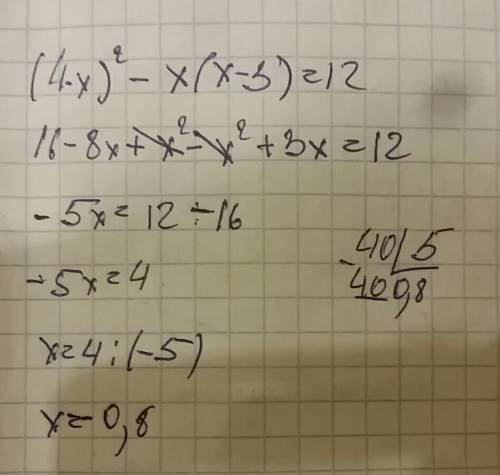 (4-x)² - x(x-3) = 12
16 - 8x + x² - x² + 3x = 12
-5x = 12 - 16
-5x = 4
x = 4 : (-5)
x = 0,8
-40 | 5
40 0,8